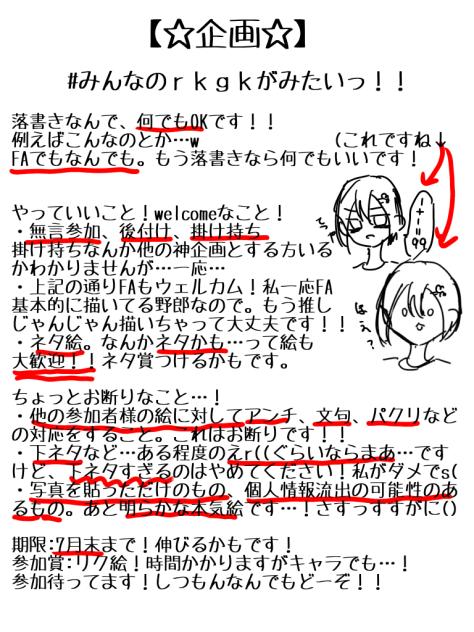 【☆企画☆】
#みんなのｒｋｇｋがみたいっ！！
落書きなんで、何でもOKです！！
例えばこんなのとか…w
(これですね↓
FAでもなんでも。もう落書きなら何でもいいです！
やっていいこと！welcomeなこと！
・無言参加、後付け、掛け持ち
掛け持ちなんか他の神企画とする方いる
かわかりませんが…一応…
・上記の通りFAもウェルカム！私一応FA
基本的に描いてる野郎なので。もう推し
じゃんじゃん描いちゃって大丈夫です！！
・ネタ絵。なんかネタかも…って絵も
大歓迎！！ネタ賞つけるかもです。
ちょっとお断りなこと…！
・他の参加者様の絵に対してアンチ、文句、パクリなど
の対応をすること。これはお断りです！！
・下ネタなど…ある程度のえr((ぐらいならまあ…です
けど、下ネタすぎるのはやめてください！私がダメでs(
・写真を貼っただけのもの、個人情報流出の可能性のあ
るもの。あと明らかな本気絵です…！さすっすすがに()
期限:7月末まで！伸びるかもです！
参加賞:リク絵！時間かかりますがキャラでも…！
参加待ってます！しつもんなんでもどーぞ！！